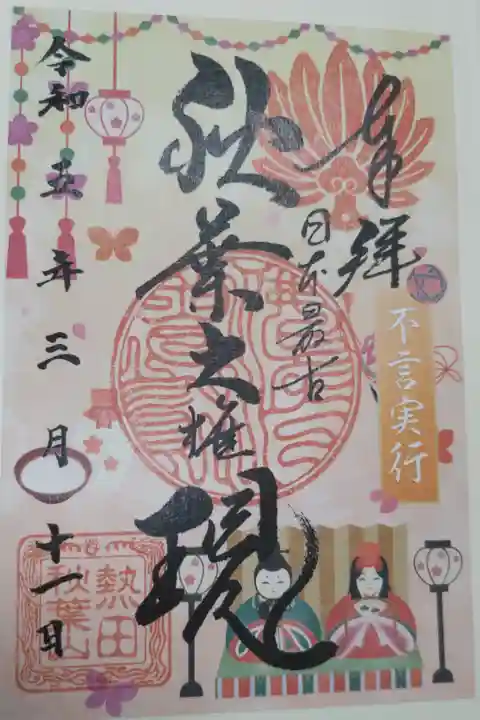 奉拝
不言実行
日本最古
秋葉大権現
令和五年三月十一日
熱田
秋葉山